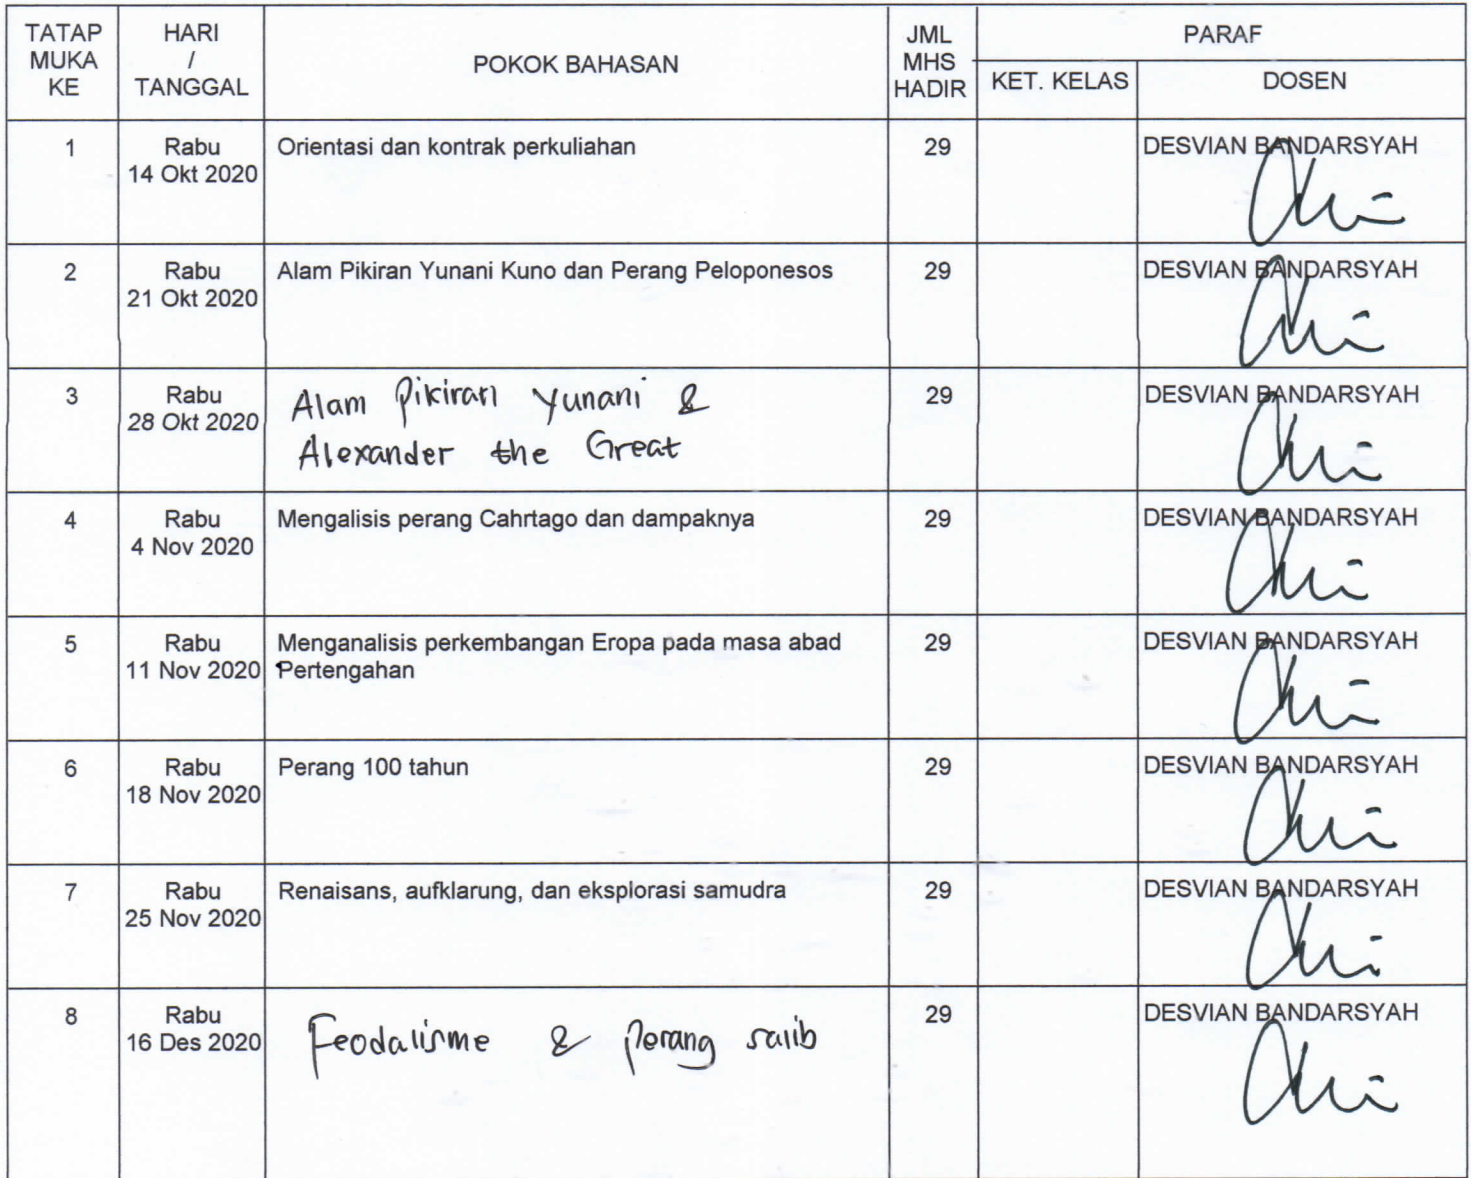 TATAP MUKA KE
HARI / TANGGAL
POKOK BAHASAN
JML MHS HADIR
PARAF
KET. KELAS
DOSEN
1
Rabu
14 Okt 2020
Orientasi dan kontrak perkuliahan
29
DESVIAN BANDARSYAH
2
Rabu
21 Okt 2020
Alam Pikiran Yunani Kuno dan Perang Peloponesos
29
DESVIAN BANDARSYAH
3
Rabu
28 Okt 2020
Alam Pikiran Yunani &
Alexander the Great
29
DESVIAN BANDARSYAH
4
Rabu
4 Nov 2020
Mengalisis perang Cahrtago dan dampaknya
29
DESVIAN BANDARSYAH
5
Rabu
11 Nov 2020
Menganalisis perkembangan Eropa pada masa abad
Pertengahan
29
DESVIAN BANDARSYAH
6
Rabu
18 Nov 2020
Perang 100 tahun
29
DESVIAN BANDARSYAH
7
Rabu
25 Nov 2020
Renaisans, aufklarung, dan eksplorasi samudra
29
DESVIAN BANDARSYAH
8
Rabu
16 Des 2020
Feodalisme & Perang salib
29
DESVIAN BANDARSYAH